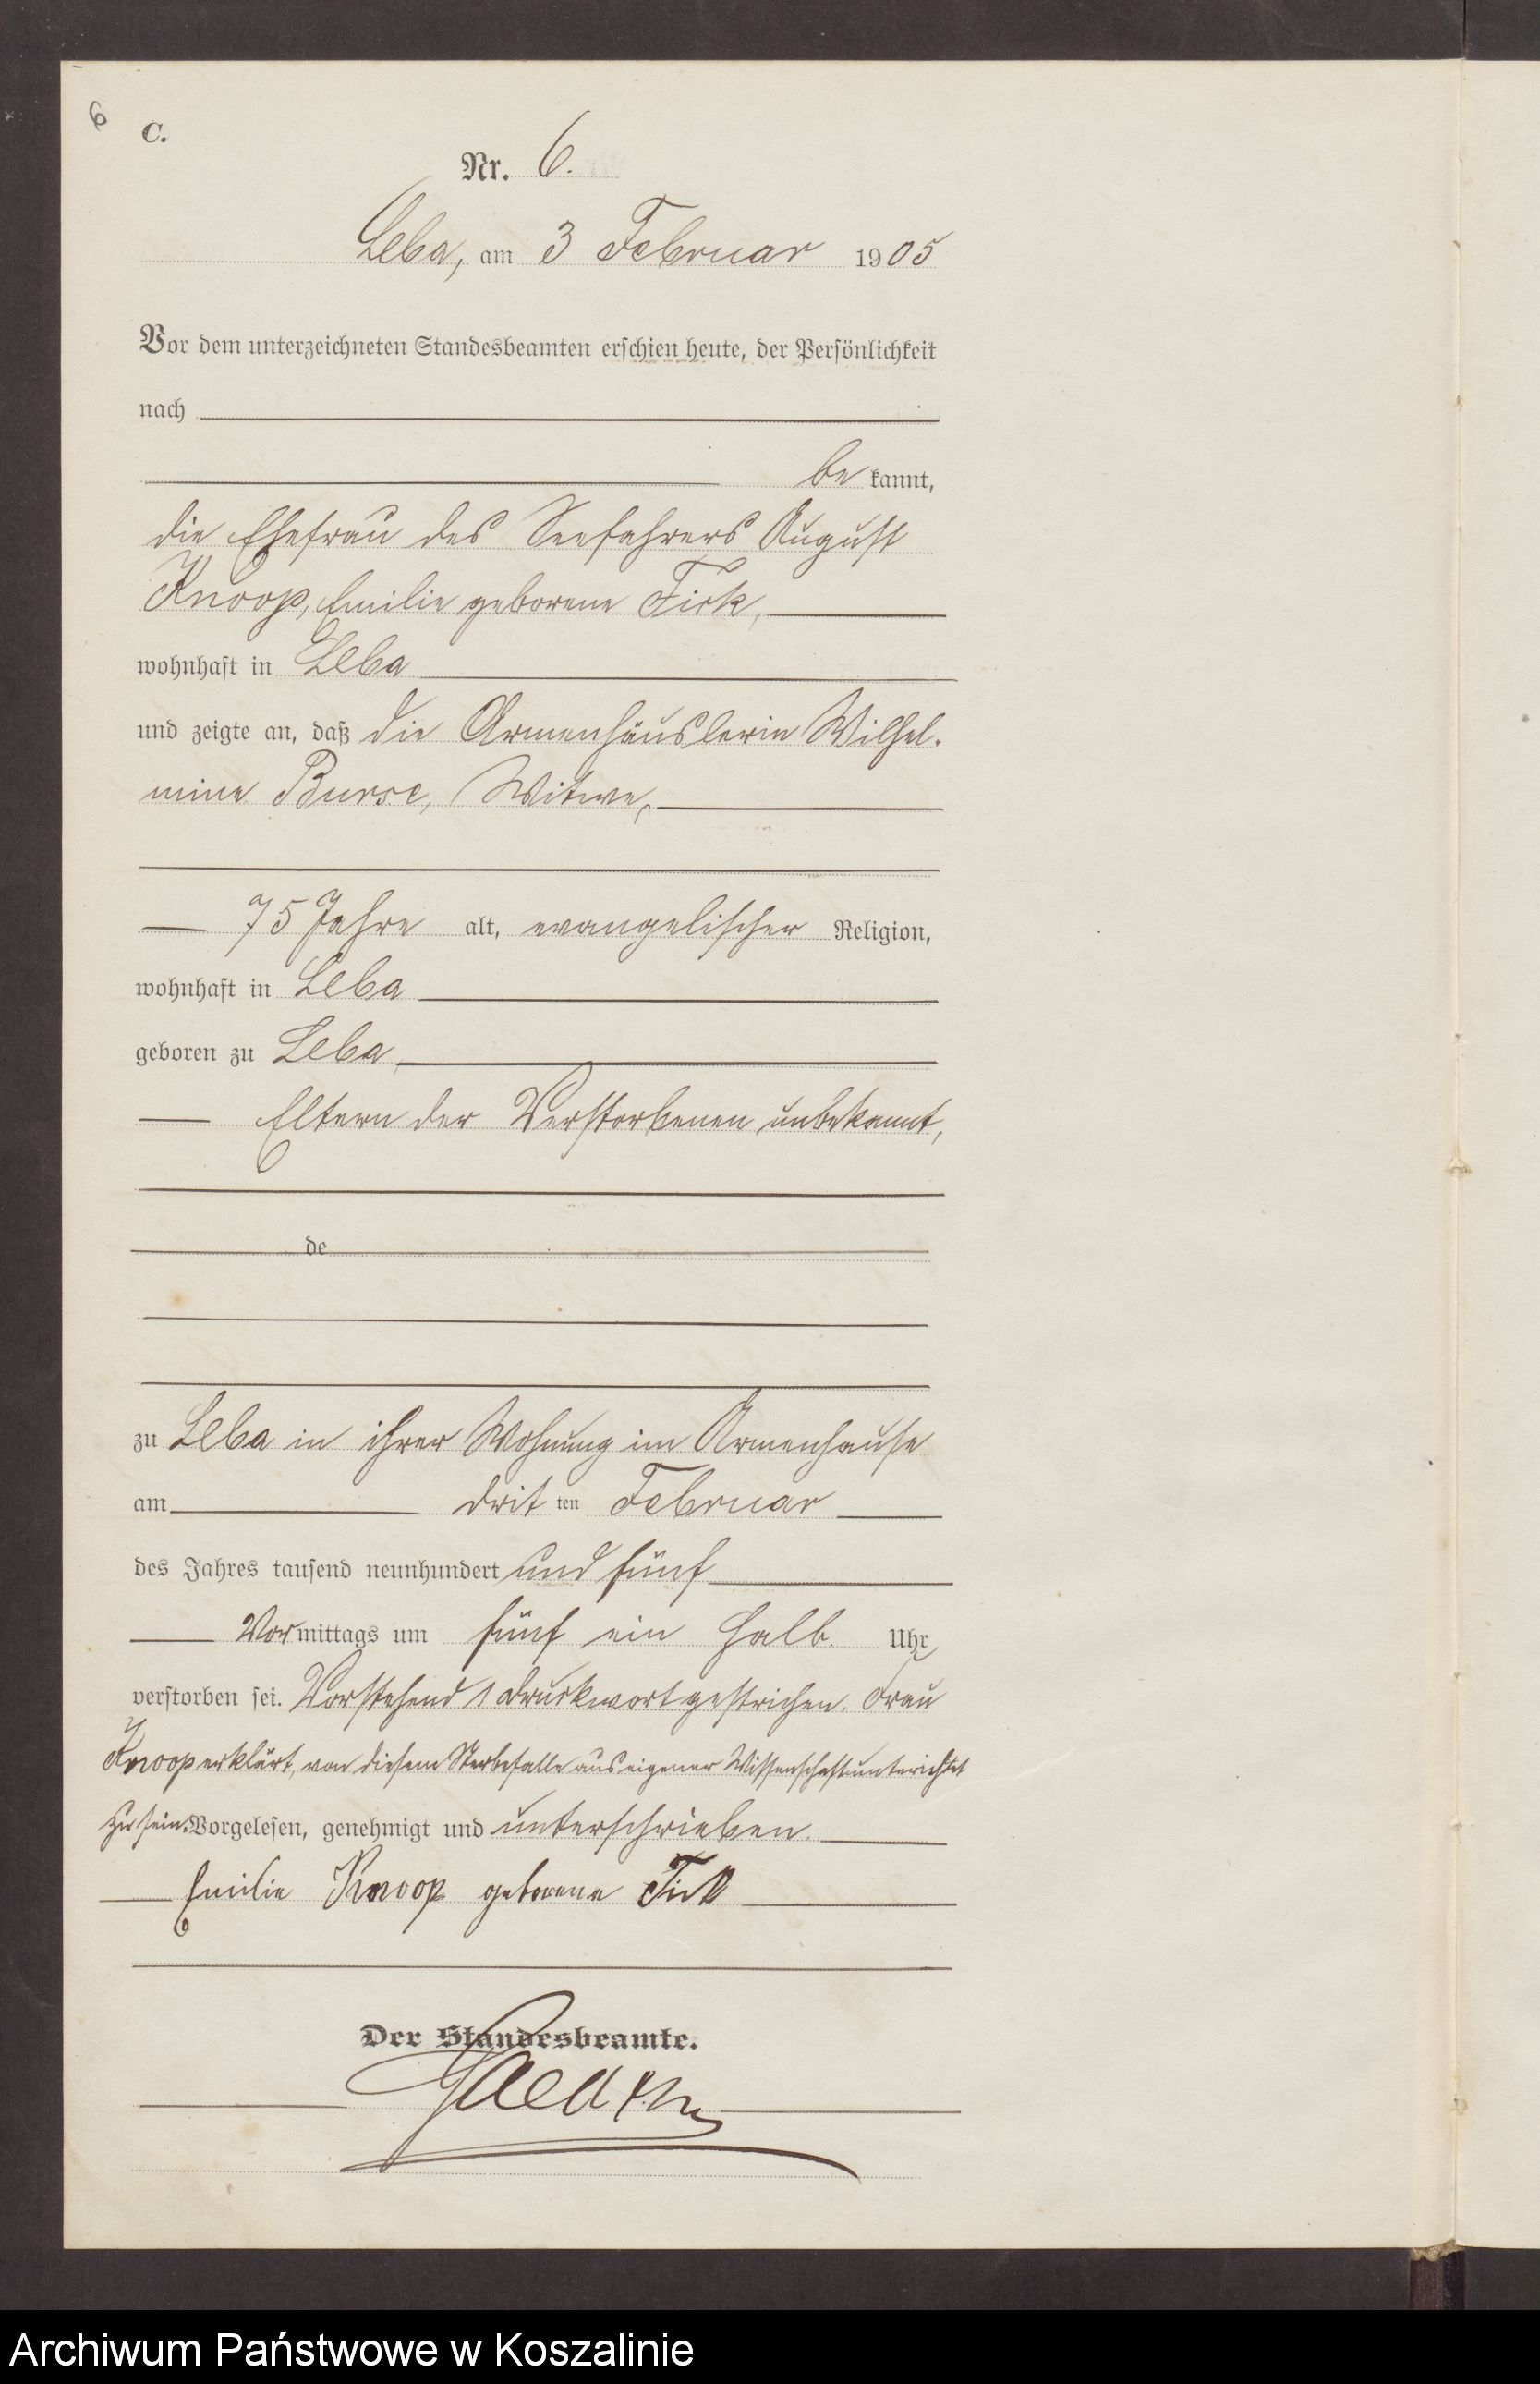 6
C.
Nr. 6.
Leba, am 3 Februar 1905
Vor dem unterzeichneten Standesbeamten erschien heute, der Persönlichkeit
nach
be kannt,
die Ehefrau des Seefahrers August
Knoop, Emilie geborene Fick,
wohnhaft in Leba
und zeigte an, daß die Armenhäuslerin Wilhel-
mine Burse, Witwe,
75 Jahre alt, evangelischer Religion,
wohnhaft in Leba
geboren zu Leba,
Eltern der Verstorbenen unbekannt,
de
zu Leba in ihrer Wohnung im Armenhause
am drit ten Februar
des Jahres tausend neunhundert und fünf
Vormittags um fünf ein halb Uhr
verstorben sei. Vorstehend 1 Druckwort gestrichen. Frau
Knoop erklärt, von diesem Sterbefalle aus eigener Wissenschaft unterrichtet
zu sein. Vorgelesen, genehmigt und unterschrieben.
Emilie Knoop geborene Fick
Der Standesbeamte.
Archiwum Państwowe w Koszalinie